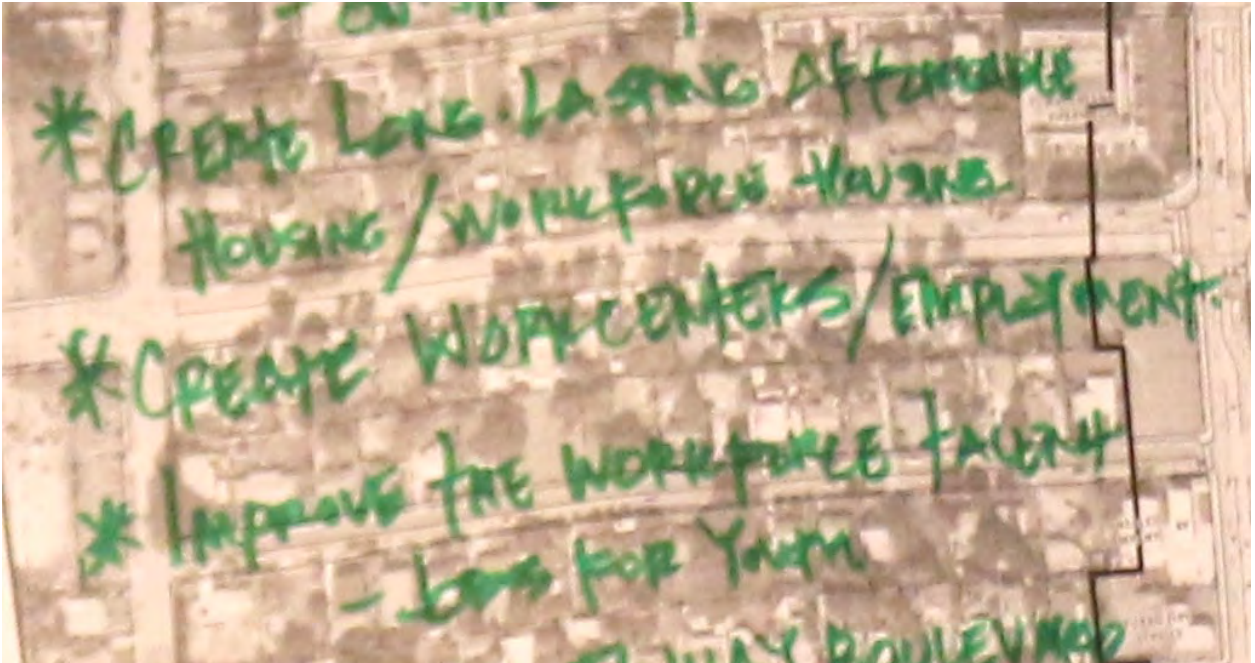 * CREATE LONG-LASTING AFFORDABLE
HOUSING/WORKFORCE HOUSING
* CREATE WORKCENTERS/EMPLOYMENT.
* IMPROVE THE WORKFORCE TALENT
- JOBS FOR YOUTH
WAY BOULEVARD